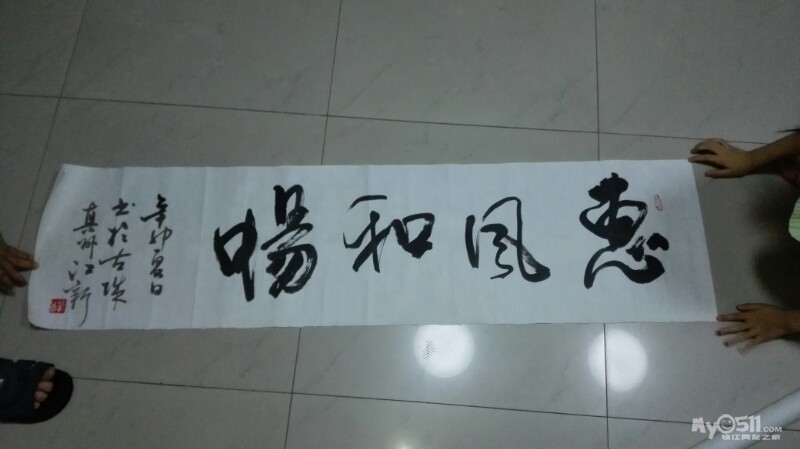 惠风和畅
辛卯夏日
书于古珠
真州江新
My0511.com
镇江网友之家